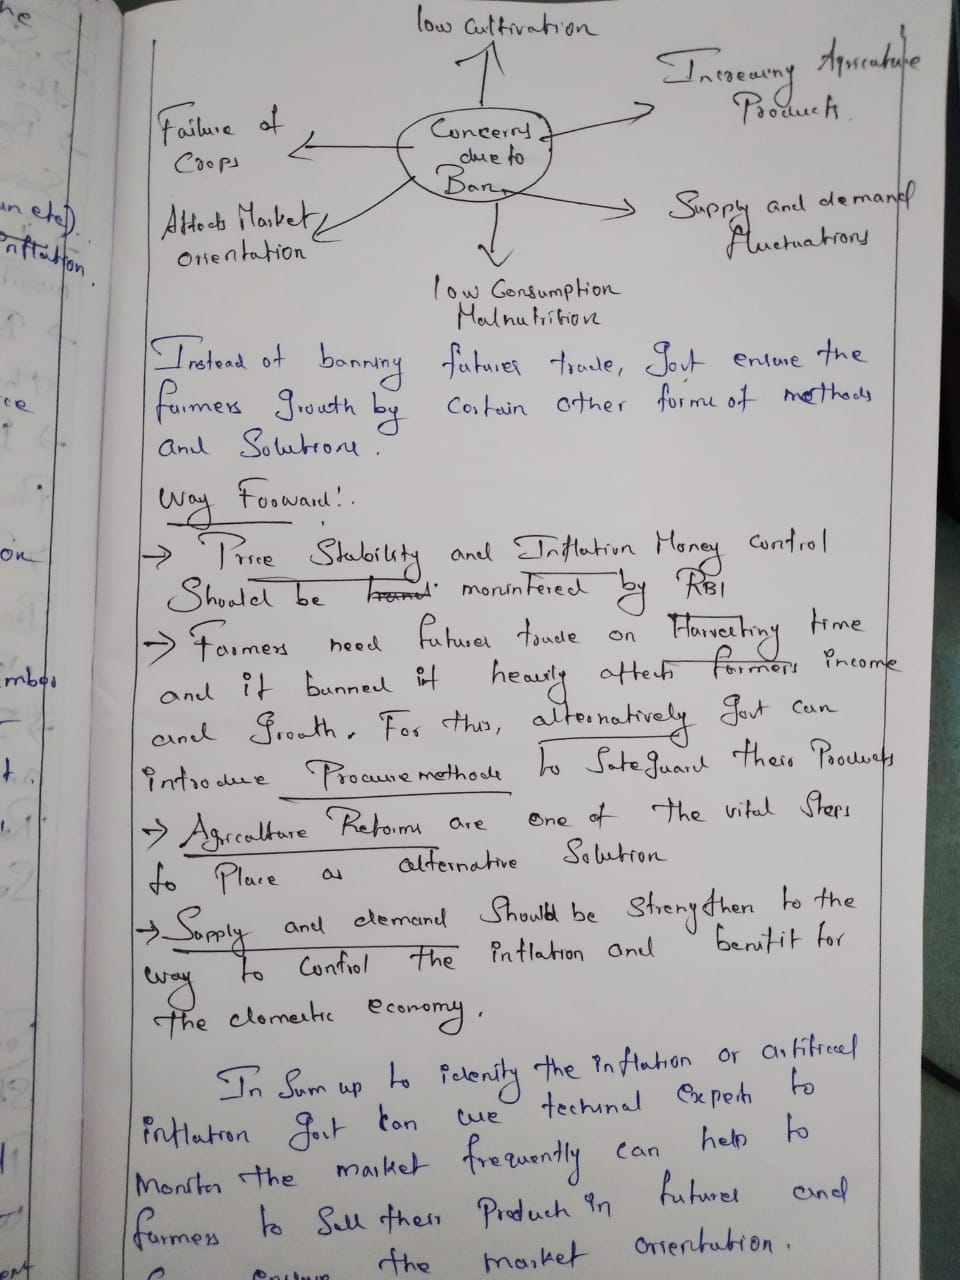 low Cultivation
Increasing Agriculture
Products.
Failure of
Crops
Concerns
due to
Ban
Affects Market
Orientation
Supply and demand
fluctuations
low Consumption
Malnutrition
Instead of banning futures trade, Govt ensure the
farmers growth by certain other forms of methods
and Solutions.
Way Forward!.
→ Price Stability and Inflation Money control
Should be monintered by RBI
→ Farmers need futures trade on Harvesting time
and if banned it heavily affects farmers income
and Growth. For this, alternatively Govt can
introduce Procure methods to Safeguard their Products
→ Agriculture Reforms are one of the vital Steps
to Place as alternative Solution
→ Supply and demand Should be Strengthen to the
way to Control the inflation and benifit for
the domestic economy.
In Sum up to idenity the inflation or artificel
inflation Govt can use techinal experts to
Monitor the market frequently can help to
farmers to Sell their Products in futures and
the market orientation.